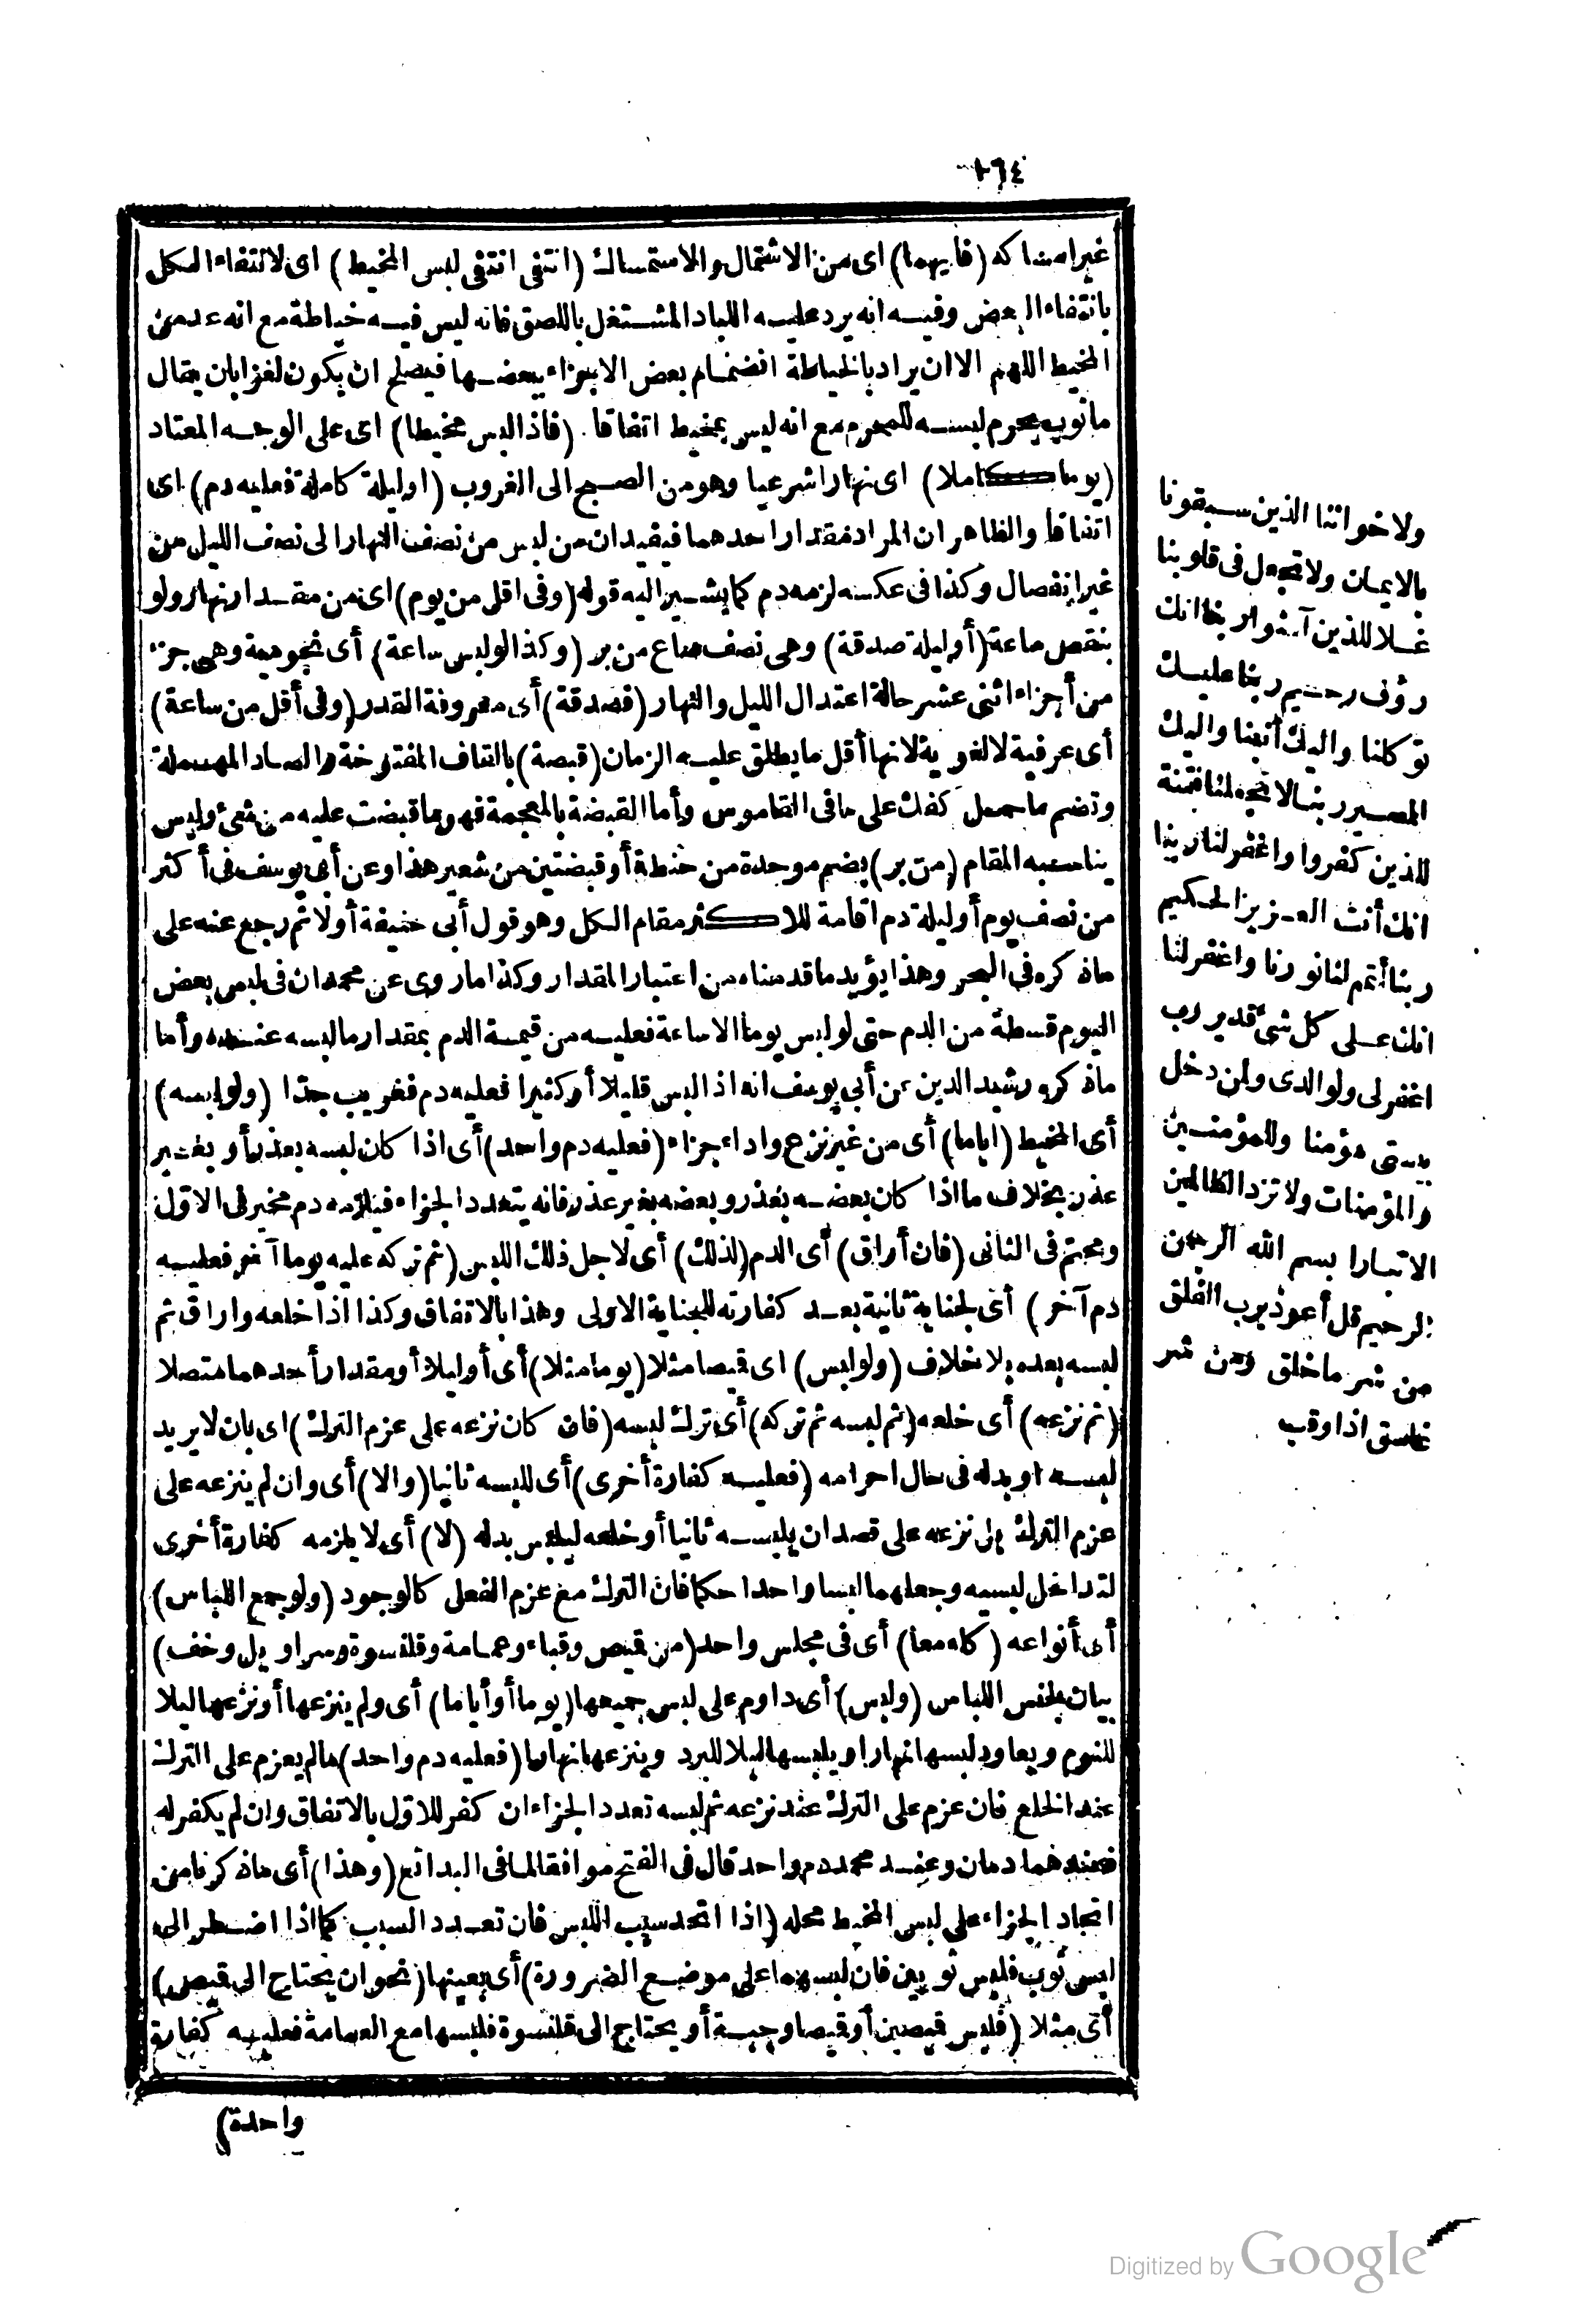 ١٦٤
غير امساكه (فايهما) اى من الاشتمال والاستمساك (انتفى انتفى لبس المخيط) اى لانتفاء الكل
بانتفاء البعض وفيه انه يرد عليه اللباد المشتغل باللصق فانه ليس فيه خياطة مع انه عد من
المخيط اللهم الا ان يراد بالخياطة انضمام بعض الاجزاء ببعضها فيصلح ان يكون لغزا بان يقال
ما ثوب يحرم لبسه للمحرم مع انه ليس بمخيط اتفاقا. (فاذا لبس مخيطا) اى على الوجه المعتاد
(يوما كاملا) اى نهارا شرعيا وهو من الصبح الى الغروب (اوليلة كاملة فعليه دم) اى
اتفاقا والظاهر ان المراد مقدار احدهما فيفيد ان من لبس من نصف النهار الى نصف الليل من
غير انفصال وكذا فى عكسه لزمه دم كما يشير اليه قوله (وفى اقل من يوم) اى من مقدار نهار ولو
بنقص ساعة (أوليلة صدقة) وهى نصف صاع من بر (وكذا لو لبس ساعة) أى نجومية وهى جزء
من أجزاء اثنى عشر حالة اعتدال الليل والنهار (فصدقة) أى معروفة القدر (وفى أقل من ساعة)
أى عرفية لا لغوية لانها أقل ما يطلق عليه الزمان (قبصة) بالقاف المفتوحة والصاد المهملة
وتضم ما حمل كفك على ما فى القاموس وأما القبضة بالمعجمة فهو ما قبضت عليه من شئ وليس
يناسبه المقام (من بر) بضم موحدة من حنطة أو قبضتين من شعير هذا وعن أبى يوسف فى أكثر
من نصف يوم أوليلة دم اقامة للاكثر مقام الكل وهو قول أبى حنيفة أولا ثم رجع عنه على
ما ذكره فى البحر وهذا يؤيد ما قدمناه من اعتبار المقدار وكذا ما روى عن محمد ان فى لبس بعض
اليوم قسطه من الدم حتى لو لبس يوما الا ساعة فعليه من قيمة الدم بمقدار ما لبسه عنده وأما
ما ذكره رشيد الدين عن أبى يوسف انه اذا لبس قليلا أو كثيرا فعليه دم فغريب جدا (ولو لبسه)
أى المخيط (اياما) أى من غير نزع واداء جزاء (فعليه دم واحد) أى اذا كان لبسه بعذر أو بغير
عذر بخلاف ما اذا كان بعضه بعذر وبعضه بغير عذر فانه يتعدد الجزاء فيلزمه دم مخير فى الاول
ومحتم فى الثانى (فان أراق) أى الدم (لذلك) أى لاجل ذلك اللبس (ثم تركه عليه يوما آخر فعليه
دم آخر) أى لجناية ثانية بعد كفارته للجناية الاولى وهذا بالاتفاق وكذا اذا خلعه واراق ثم
لبسه بعده بلا خلاف (ولو لبس) اى قيصا مثلا (يوما مثلا) أى أو ليلا أو مقدار أحدهما متصلا
(ثم نزعه) أى خلعه (ثم لبسه ثم تركه) أى ترك لبسه (فان كان نزعه على عزم الترك) اى بان لا يريد
لبسه او بدله فى حال احرامه (فعليه كفارة أخرى) أى للبسه ثانيا (والا) أى وان لم ينزعه على
عزم الترك بل نزعه على قصد ان يلبسه ثانيا أو خلعه ليلبس بدله (لا) أى لا يلزمه كفارة أخرى
لتداخل لبسيه وجعلهما لبسا واحدا حكما فان الترك مع عزم الفعل كالوجود (ولو جمع اللباس)
أى أنواعه (كله معا) أى فى مجلس واحد (من قيص وقباء وعمامة وقلنسوة وسراويل وخف)
بيان لجنس اللباس (ولبس) أى داوم على لبس جميعها (يوما أو أياما) أى ولم ينزعها أو نزعها ليلا
للنوم ويعاود لبسها نهارا او يلبسها ليلا للبرد وينزعها نهارا (فعليه دم واحد) مالم يعزم على الترك
عند الخلع فان عزم على الترك عند نزعه ثم لبسه تعدد الجزاء ان كفر للاول بالاتفاق وان لم يكفر له
فعندهما دمان وعند محمد دم واحد قال فى الفتح موافقا لما فى البدائع (وهذا) أى ما ذكرنا من
اتحاد الجزاء على لبس المخيط محله (اذا اتحد سبب اللبس فان تعدد السبب كما اذا اضطر الى
لبس ثوب فلبس ثوبين فان لبسهما على موضع الضرورة) أى بعينها (نحو ان يحتاج الى قيص)
أى مثلا (فلبس قيصين أو قيصا وجبة أو يحتاج الى قلنسوة فلبسها مع العمامة فعليه كفارة
واحدة)
ولاخواننا الذين سبقونا
بالايمان ولا تجعل فى قلوبنا
غلا للذين آمنوا ربنا انك
رؤف رحيم ربنا عليك
توكلنا واليك أنبنا واليك
المصير ربنا لا تجعلنا فتنة
للذين كفروا واغفر لنا ربنا
انك أنت العزيز الحكيم
ربنا أتمم لنا نورنا واغفر لنا
انك على كل شئ قدير رب
اغفر لى ولوالدى ولمن دخل
بيتى مؤمنا وللمؤمنين
والمؤمنات ولا تزد الظالمين
الا تبارا بسم الله الرحمن
الرحيم قل أعوذ برب الفلق
من شر ما خلق ومن شر
غاسق اذا وقب
Digitized by Google